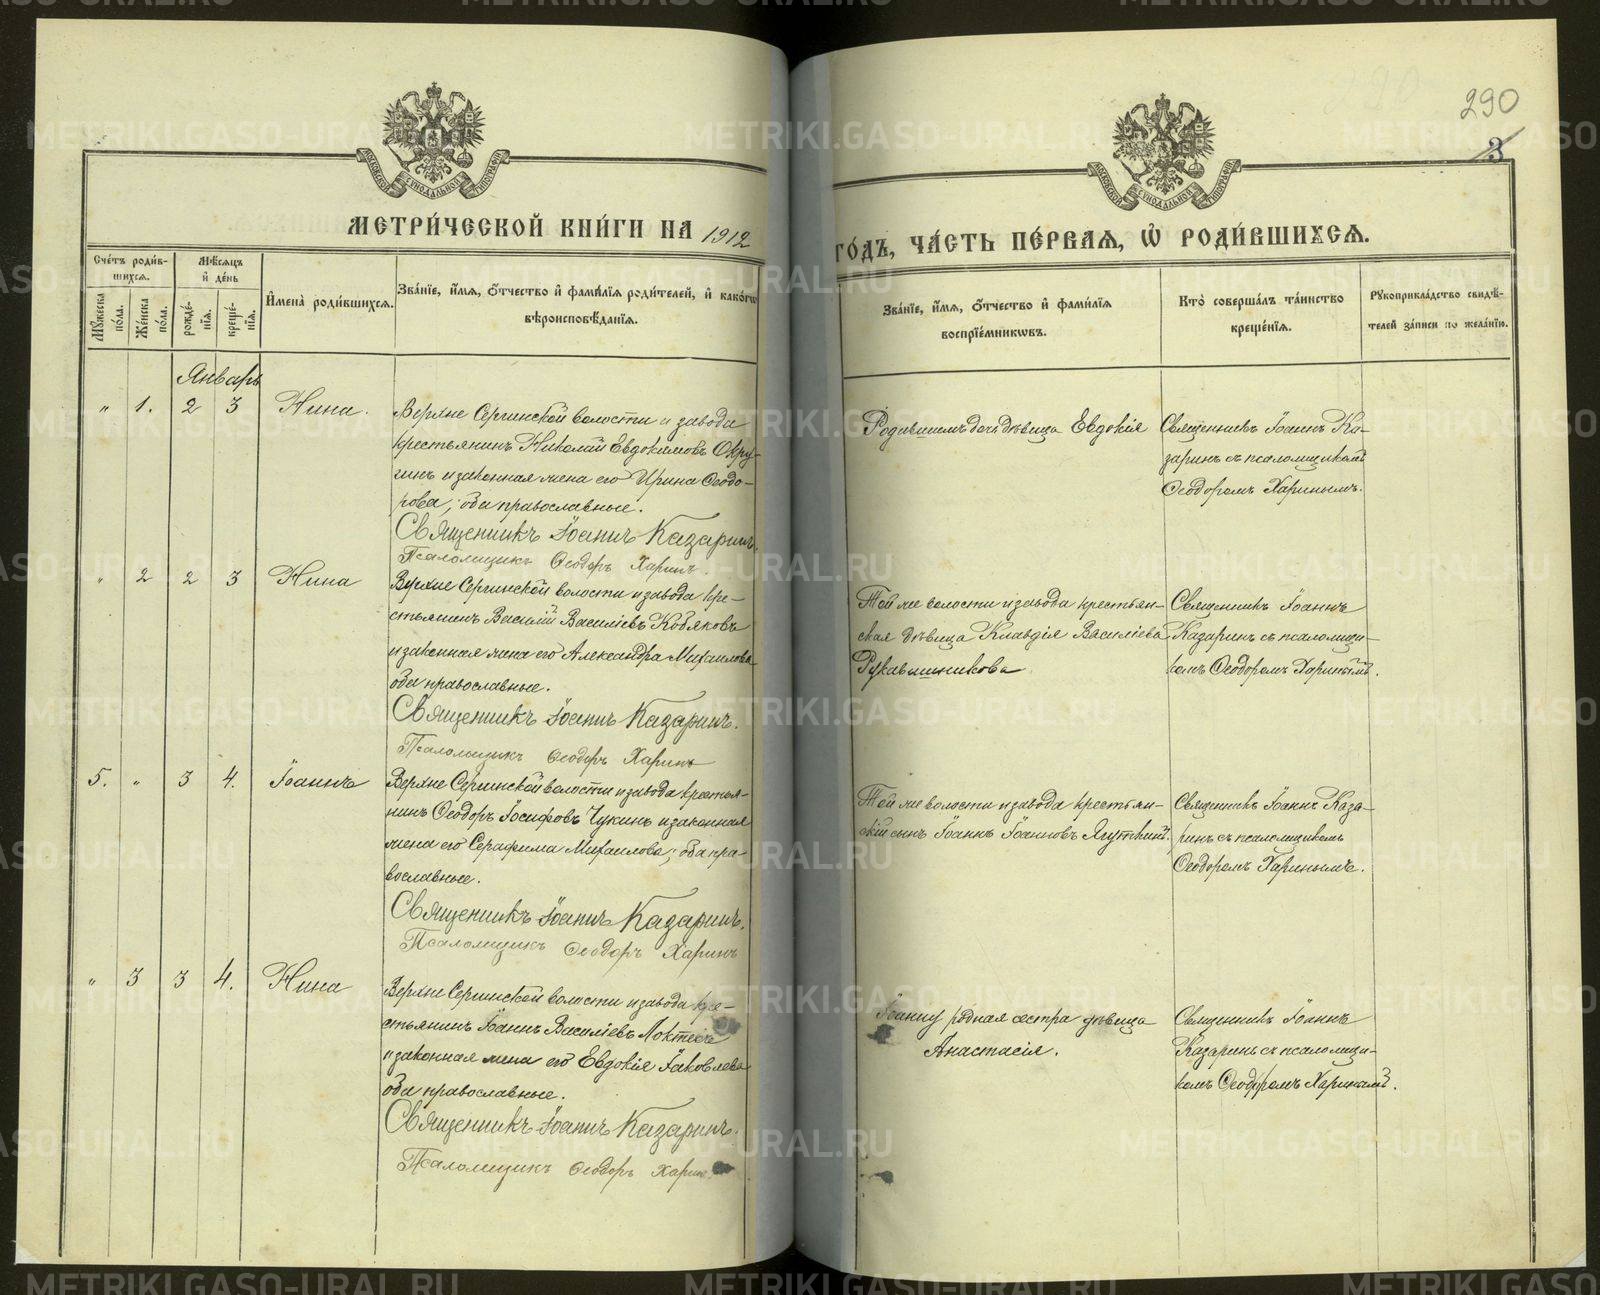 290
3
МОСКОВСКОЙ СѴНОДАЛЬНОЙ ТИПОГРАФІИ
МОСКОВСКОЙ СѴНОДАЛЬНОЙ ТИПОГРАФІИ
МЕТРИ́ЧЕСКОЙ КНИ́ГИ НА 1912
ГО́ДЪ, ЧА́СТЬ ПЕ́РВАЯ, Ѽ РОДИ́ВШИХСЯ.
Сче́тъ роди́в-
шихся.
Мꙋ́жеска по́ла.
Же́нска по́ла.
Мѣ́сяцъ и҆ де́нь
рожде́-
нїя.
креще́-
нїя.
И҆мена̀ роди́вшихся.
Зва́нїе, и҆́мя, ѻ҆́тчество и҆ фамї́лїя роди́телей, и҆ како́гѡ
вѣроисповѣ́данїя.
Зва́нїе, и҆́мя, ѻ҆́тчество и҆ фамї́лїя
воспрїе́мниковъ.
Кто̀ соверша́лъ та́инство
креще́нїя.
Рꙋкоприкла́дство свидѣ́-
телей за́писи по жела́нїю.
Январь
" 1. 2 3 Нина.
Верхне Сергинской волости и завода
крестьянинъ Николай Евдокимовъ Окру-
гинъ и законная жена его Ирина Ѳеодо-
рова; оба православные.
Священникъ Іоаннъ Казаринъ.
Псаломщикъ Ѳеодоръ Харинъ.
Родившейся дочь дѣвица Евдокія
Священникъ Іоаннъ Ка-
заринъ съ псаломщикомъ
Ѳеодоромъ Харинымъ.
" 2 2 3 Нина
Верхне Сергинской волости и завода кре-
стьянинъ Василій Василіевъ Кобяковъ
и законная жена его Александра Михаилова
оба православные.
Священникъ Іоаннъ Казаринъ.
Псаломщикъ Ѳеодоръ Харинъ
Той же волости и завода крестьян-
ская дѣвица Клавдія Василіева
Рукавишникова
Священникъ Іоаннъ
Казаринъ съ псаломщи-
комъ Ѳеодоромъ Харинымъ.
5. " 3 4. Іоаннъ
Верхне Сергинской волости и завода крестья-
нинъ Ѳеодоръ Іосифовъ Чукинъ и законная
жена его Серафима Михаилова; оба пра-
вославные.
Священникъ Іоаннъ Казаринъ.
Псаломщикъ Ѳеодоръ Харинъ
Той же волости и завода крестьян-
скій сынъ Іоаннъ Іоанновъ Ягуткинъ.
Священникъ Іоаннъ Каза-
ринъ съ псаломщикомъ
Ѳеодоромъ Харинымъ.
" 3 3 4. Нина
Верхне Сергинской волости и завода кре-
стьянинъ Іоаннъ Василіевъ Локтевъ
и законная жена его Евдокія Іаковлева
оба православные.
Священникъ Іоаннъ Казаринъ.
Псаломщикъ Ѳеодоръ Харинъ
Іоанну родная сестра дѣвица
Анастасія.
Священникъ Іоаннъ
Казаринъ съ псаломщи-
комъ Ѳеодоромъ Харинымъ.
METRIKI.GASO-URAL.RU